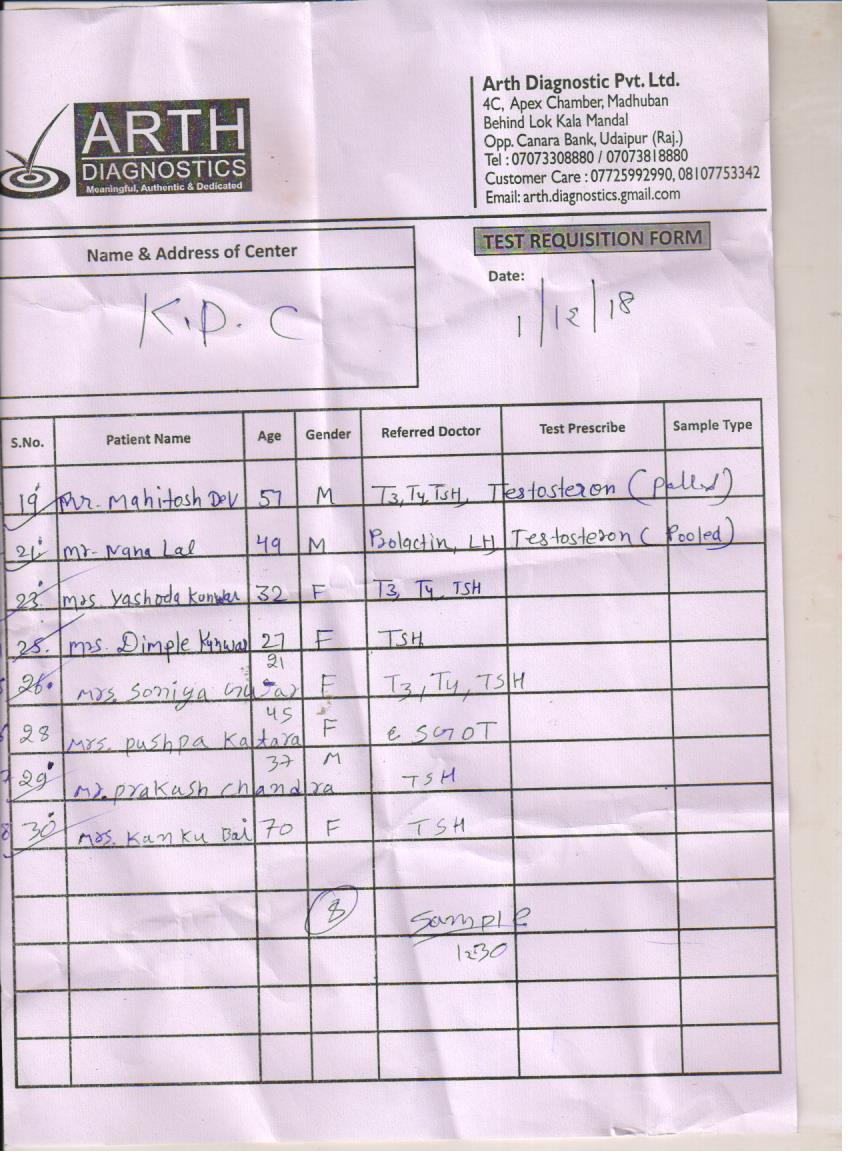 ARTH
DIAGNOSTICS
Meaningful, Authentic & Dedicated
Arth Diagnostic Pvt. Ltd.
4C, Apex Chamber, Madhuban
Behind Lok Kala Mandal
Opp. Canara Bank, Udaipur (Raj.)
Tel : 07073308880 / 07073818880
Customer Care : 07725992990, 08107753342
Email: arth.diagnostics.gmail.com
Name & Address of Center
TEST REQUISITION FORM
K.P. C
Date:
1/12/18
S.No. Patient Name Age Gender Referred Doctor Test Prescribe Sample Type
19 Mr. Mahitosh Dev 57 M T3, T4, TSH, Testosteron (
21 Mr. Nana Lal 49 M Prolactin, LH Testosteron (Pooled)
23. Mrs. Yashoda Kunwar 32 F T3, T4, TSH
25. Mrs. Dimple Kunwar 27 F TSH
26. Mrs. Soniya 21 F T3, T4, TSH
28 Mrs. pushpa Katara 45 F SGOT
29 Mr. prakash Chandra 37 M TSH
30 Mrs. Kanku Bai 70 F TSH
8 Sample
12:30